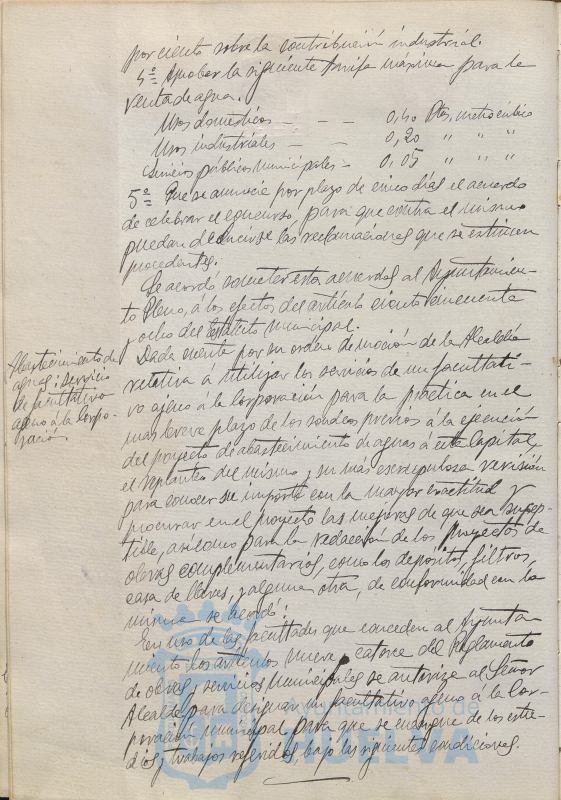 por ciento sobre la contribución industrial.
4º = Aprobar la siguiente tarifa máxima para la
venta de agua.
Usos domésticos — — — 0,40 Ptas. metro cúbico
Usos industriales — — 0,20 " " "
Servicios públicos municipales — 0,05 " " "
5º = Que se anuncie por plazo de cinco días el acuerdo
de celebrar el concurso, para que contra el mismo
puedan deducirse las reclamaciones que se estimen
procedentes.
Se acordó someter estos acuerdos al Ayuntamien-
to Pleno, á los efectos del artículo ciento cincuenta
y ocho del Estatuto Municipal.
Abastecimiento de
aguas: servicio
de facultativo
ageno á la Corpo-
ración
Dada cuenta por su orden de moción de la Alcaldía
relativa á utilizar los servicios de un facultati-
vo ajeno á la Corporación para la práctica en el
mas breve plazo de los sondeos previos á la ejecución
del proyecto de abastecimiento de aguas á esta Capital,
el replanteo del mismo, su más escrupulosa revisión
para conocer su importe con la mayor exactitud y
procurar en el proyecto las mejoras de que sea suscep-
tible, así como para la redacción de los proyectos de
obras complementarias, como los depósitos, filtros,
casa de llaves, y alguna otra, de conformidad con la
misma se acordó:
En uso de las facultades que conceden al Ayunta
miento los artículos nueve y catorce del Reglamento
de obras y servicios municipales se autorize al Señor
Alcalde, para designar un facultativo ageno á la Cor-
poración municipal para que se encargue de los estu-
dios y trabajos referidos, bajo las siguientes condiciones.
Ayuntamiento de
HUELVA